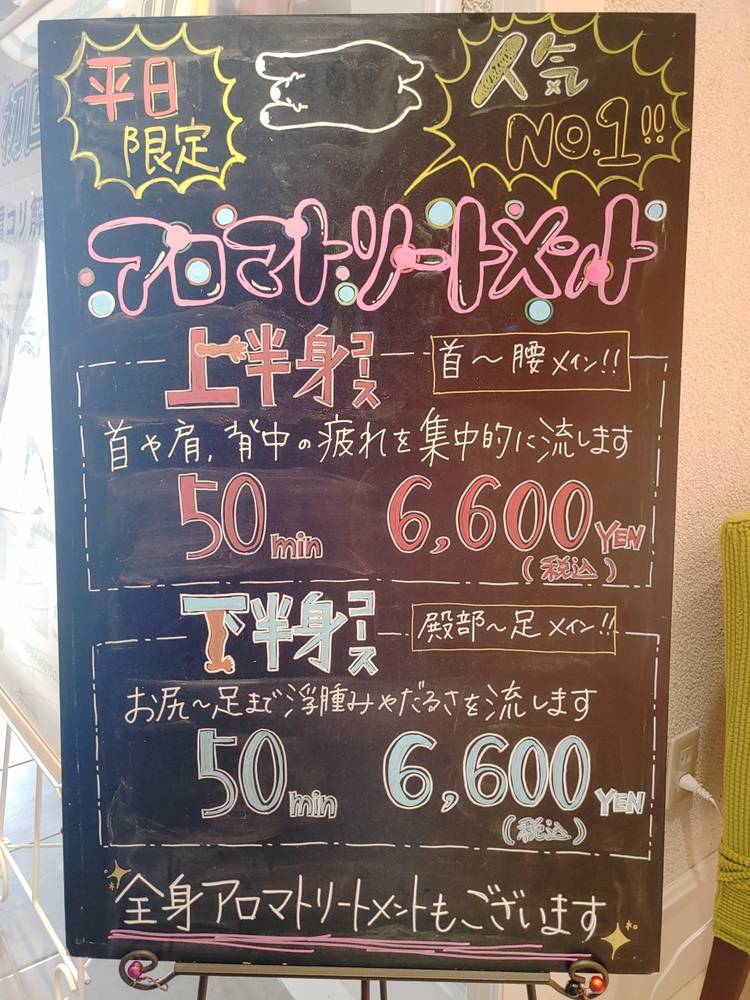 平日
限定
人気
NO.1!!
アロマトリートメント
上半身コース
首〜腰メイン!!
首や肩,背中の疲れを集中的に流します
50min 6,600YEN
(税込)
下半身コース
殿部〜足メイン!!
お尻〜足まで浮腫みやだるさを流します
50min 6,600YEN
(税込)
全身アロマトリートメントもございます